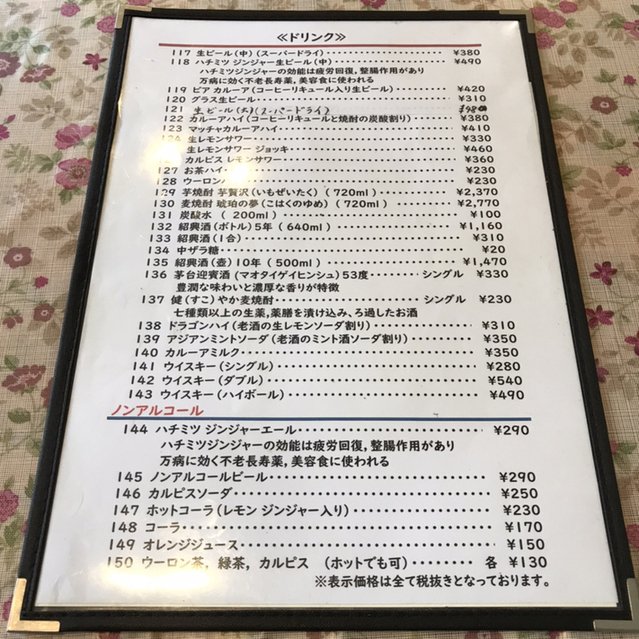 ≪ドリンク≫
117 生ビール(中)(スーパードライ) ¥380
118 ハチミツ ジンジャー生ビール(中) ¥490
ハチミツジンジャーの効能は疲労回復,整腸作用があり
万病に効く不老長寿薬,美容食に使われる
119 ビア カルーア(コーヒーリキュール入り生ビール) ¥420
120 グラス生ビール ¥310
121 生ビール(大)(スーパードライ)
122 カルーアハイ(コーヒーリキュールと焼酎の炭酸割り) ¥380
123 マッチャカルーアハイ ¥410
124 生レモンサワー ¥330
生レモンサワー ジョッキ ¥460
カルピス レモンサワー ¥360
127 お茶ハイ ¥230
128 ウーロンハイ ¥230
129 芋焼酎 芋贅沢(いもぜいたく)(720ml) ¥2,370
130 麦焼酎 琥珀の夢(こはくのゆめ)(720ml) ¥2,770
131 炭酸水 (200ml) ¥100
132 紹興酒(ボトル)5年(640ml) ¥1,160
133 紹興酒(1合) ¥310
134 中ザラ糖 ¥20
135 紹興酒(壺)10年(500ml) ¥1,470
136 茅台迎賓酒(マオタイゲイヒンシュ)53度 シングル ¥330
豊潤な味わいと濃厚な香りが特徴
137 健(すこ)やか麦焼酎 シングル ¥230
七種類以上の生薬,薬膳を漬け込み,ろ過したお酒
138 ドラゴンハイ(老酒の生レモンソーダ割り) ¥310
139 アジアンミントソーダ(老酒のミント酒ソーダ割り) ¥350
140 カルーアミルク ¥350
141 ウイスキー(シングル) ¥280
142 ウイスキー(ダブル) ¥540
143 ウイスキー(ハイボール) ¥490
ノンアルコール
144 ハチミツ ジンジャーエール ¥290
ハチミツジンジャーの効能は疲労回復,整腸作用があり
万病に効く不老長寿薬,美容食に使われる
145 ノンアルコールビール ¥290
146 カルピスソーダ ¥250
147 ホットコーラ(レモン ジンジャー入り) ¥230
148 コーラ ¥170
149 オレンジジュース ¥150
150 ウーロン茶, 緑茶, カルピス (ホットでも可) 各 ¥130
※表示価格は全て税抜きとなっております。